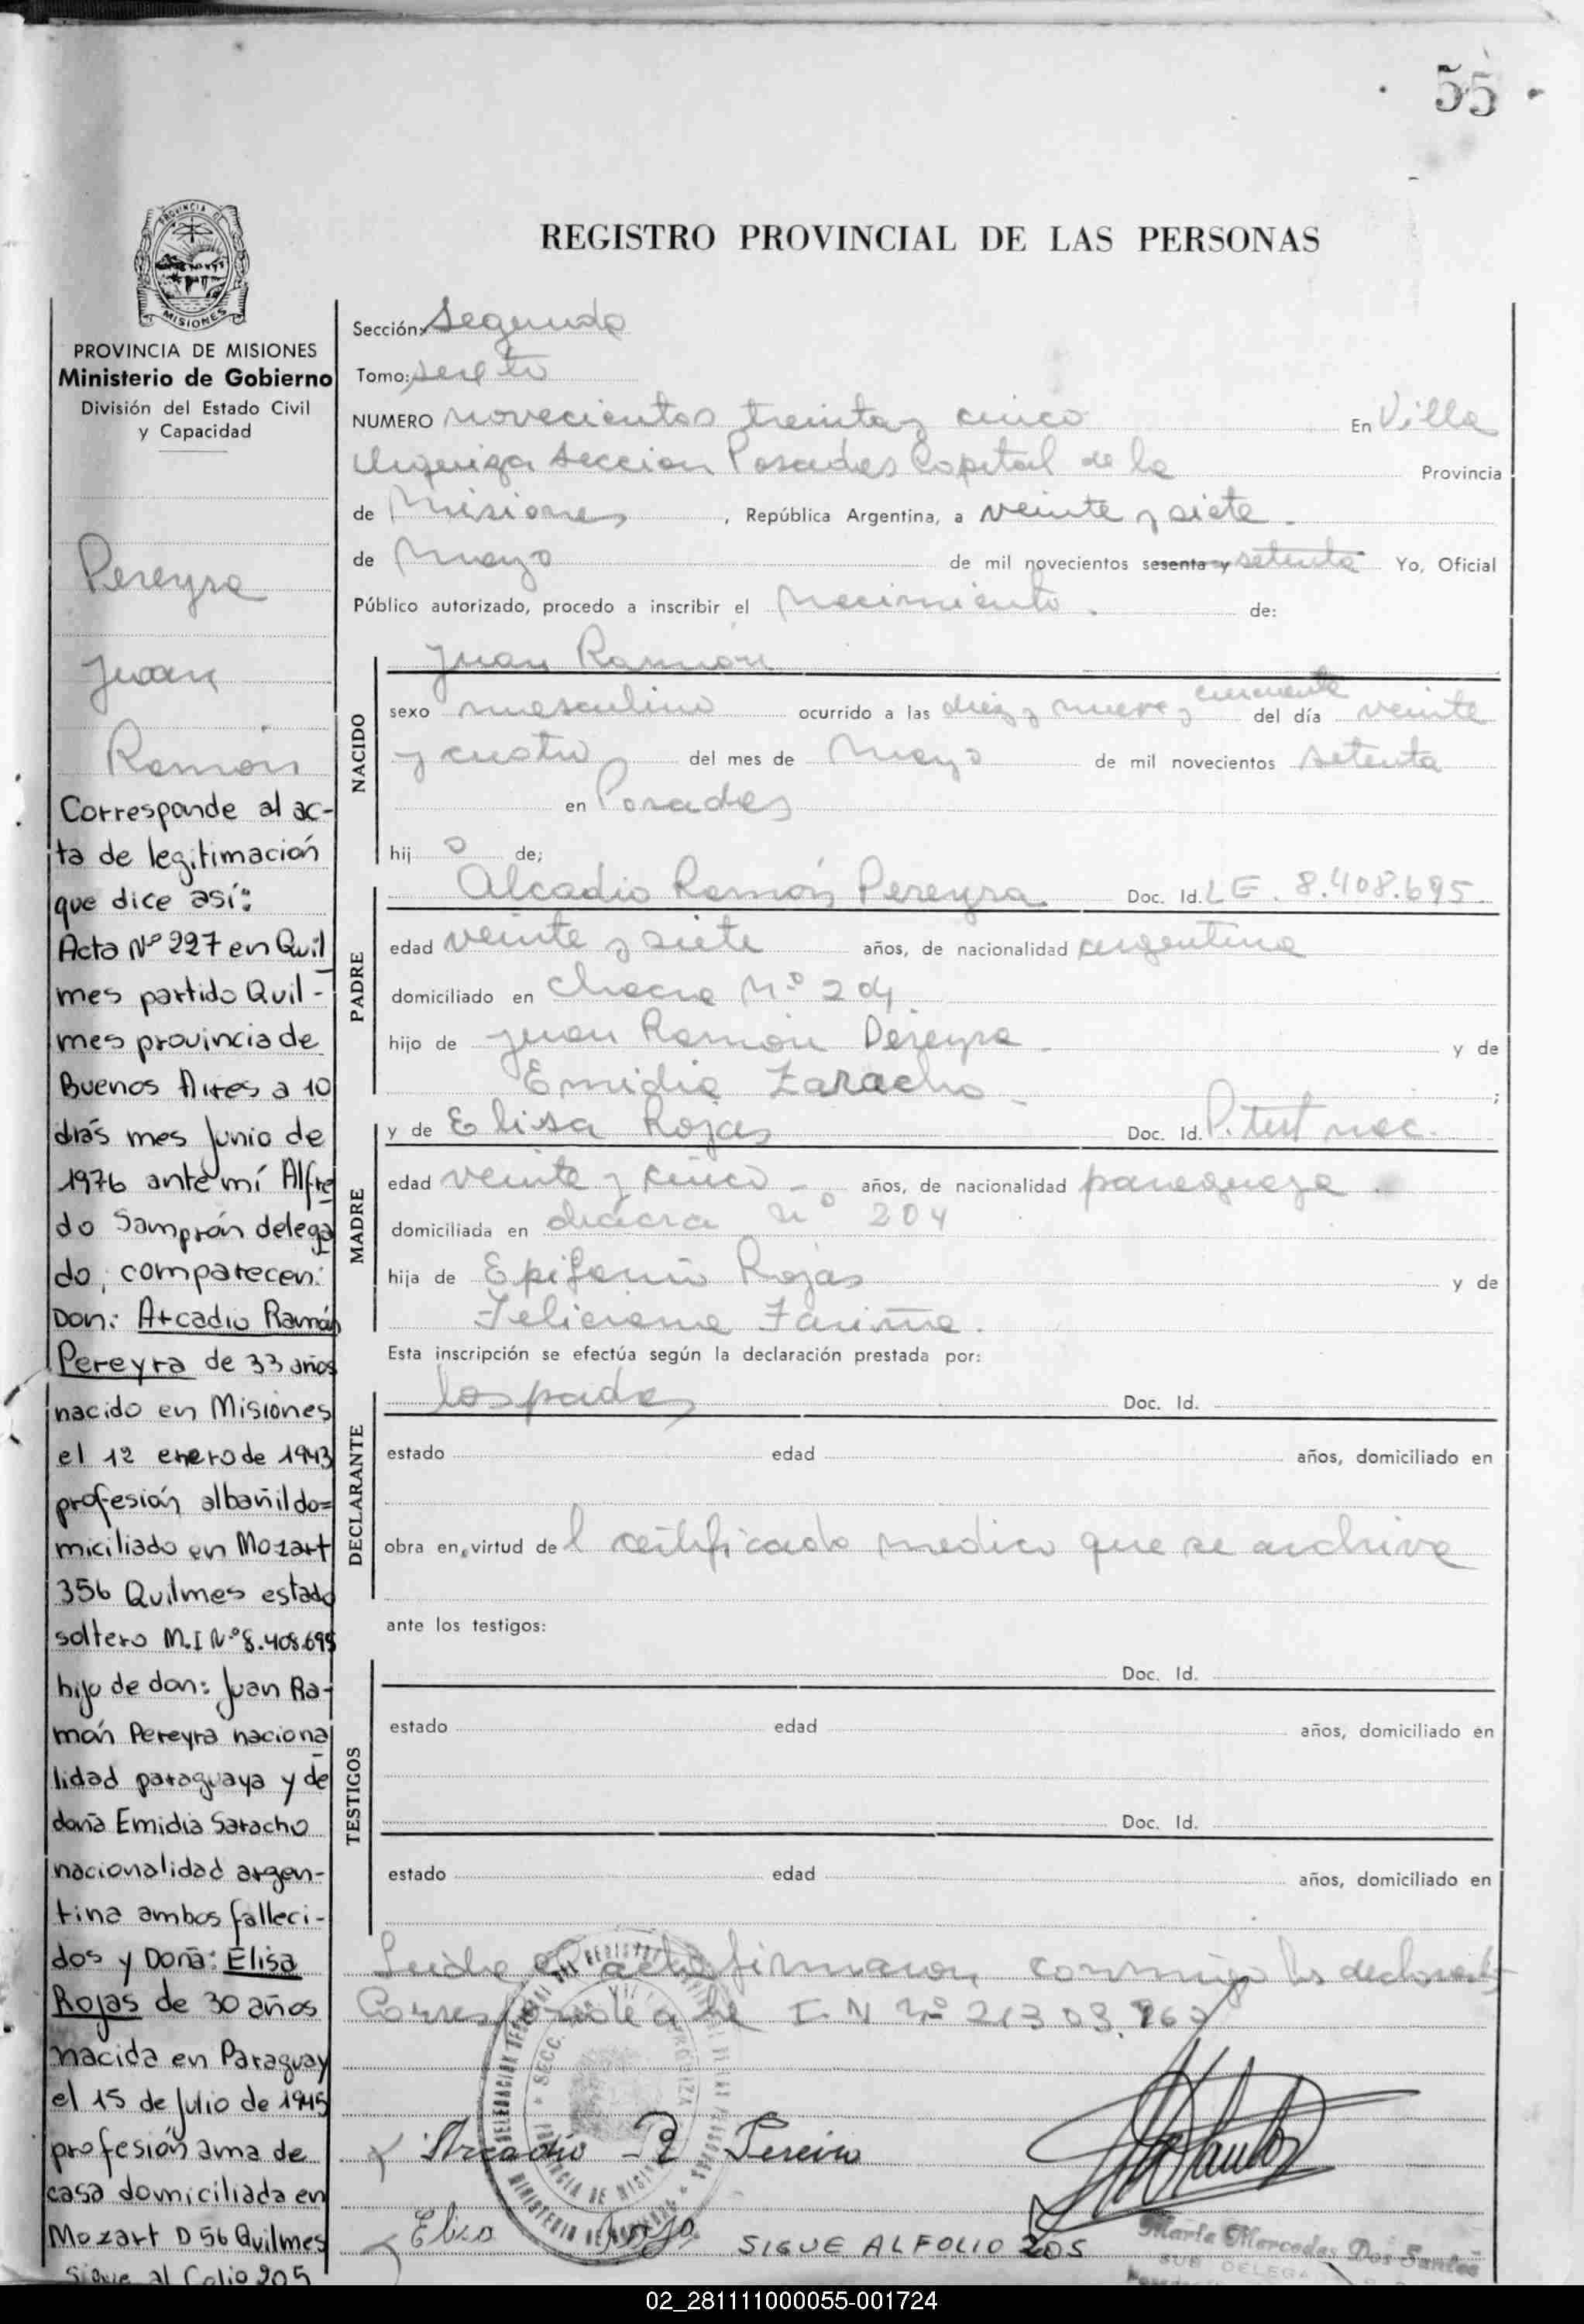 55
REGISTRO PROVINCIAL DE LAS PERSONAS
PROVINCIA DE MISIONES
Ministerio de Gobierno
División del Estado Civil
y Capacidad
Pereyra
Juan
Ramón
Corresponde al ac-
ta de legitimación
que dice así:
Acta Nº 227 en Quil
mes partido Quil-
mes provincia de
Buenos Aires a 10
días mes Junio de
1976 ante mí Alfre
do Samprón delega
do, comparecen:
Don: Arcadio Ramón
Pereyra de 33 años
nacido en Misiones
el 12 enero de 1943
profesión albañil do=
miciliado en Mozart
356 Quilmes estado
soltero M.I Nº 8.408.695
hijo de don: Juan Ra-
món Pereyra naciona
lidad paraguaya y de
doña Emidia Saracho
nacionalidad argen-
tina ambos falleci-
dos y Doña: Elisa
Rojas de 30 años
nacida en Paraguay
el 15 de Julio de 1945
profesión ama de
casa domiciliada en
Mozart D 56 Quilmes
Sigue al Folio 205
Sección: Segunda
Tomo: sexto
NUMERO novecientos treinta y cinco En Villa
Urquiza Seccion Posadas Capital de la Provincia
de Misiones, República Argentina, a veinte y siete
de Mayo de mil novecientos sesenta y setenta Yo, Oficial
Público autorizado, procedo a inscribir el Nacimiento. de:
NACIDO
Juan Ramón
sexo masculino ocurrido a las diez y nueve y cincuenta del día veinte
y cuatro del mes de Mayo de mil novecientos setenta
en Posadas
hij o de;
PADRE
Alcadio Ramón Pereyra Doc. Id. LE. 8.408.695.
edad veinte y siete años, de nacionalidad argentina
domiciliado en Chacra Nº 204
hijo de Juan Ramón Pereyra y de
Emidia Zaracho ;
MADRE
y de Elisa Rojas Doc. Id. P. test nac.
edad veinte y cinco años, de nacionalidad paraguaya
domiciliada en chacra nº 204
hija de Epifanio Rojas y de
Feliciana Fariña.
Esta inscripción se efectúa según la declaración prestada por:
DECLARANTE
los padres Doc. Id.
estado edad años, domiciliado en
obra en virtud de l certificado medico que se archiva
ante los testigos:
TESTIGOS
Doc. Id.
estado edad años, domiciliado en
Doc. Id.
estado edad años, domiciliado en
Leida el acta firmaron conmigo los declarantes
Corresponde a la I.N Nº 21303.960
Arcadio R Pereira
Elisa Roja
SIGUE AL FOLIO 205
Marta Mercedes Dos Santos
SUB DELEGA
02_281111000055-001724